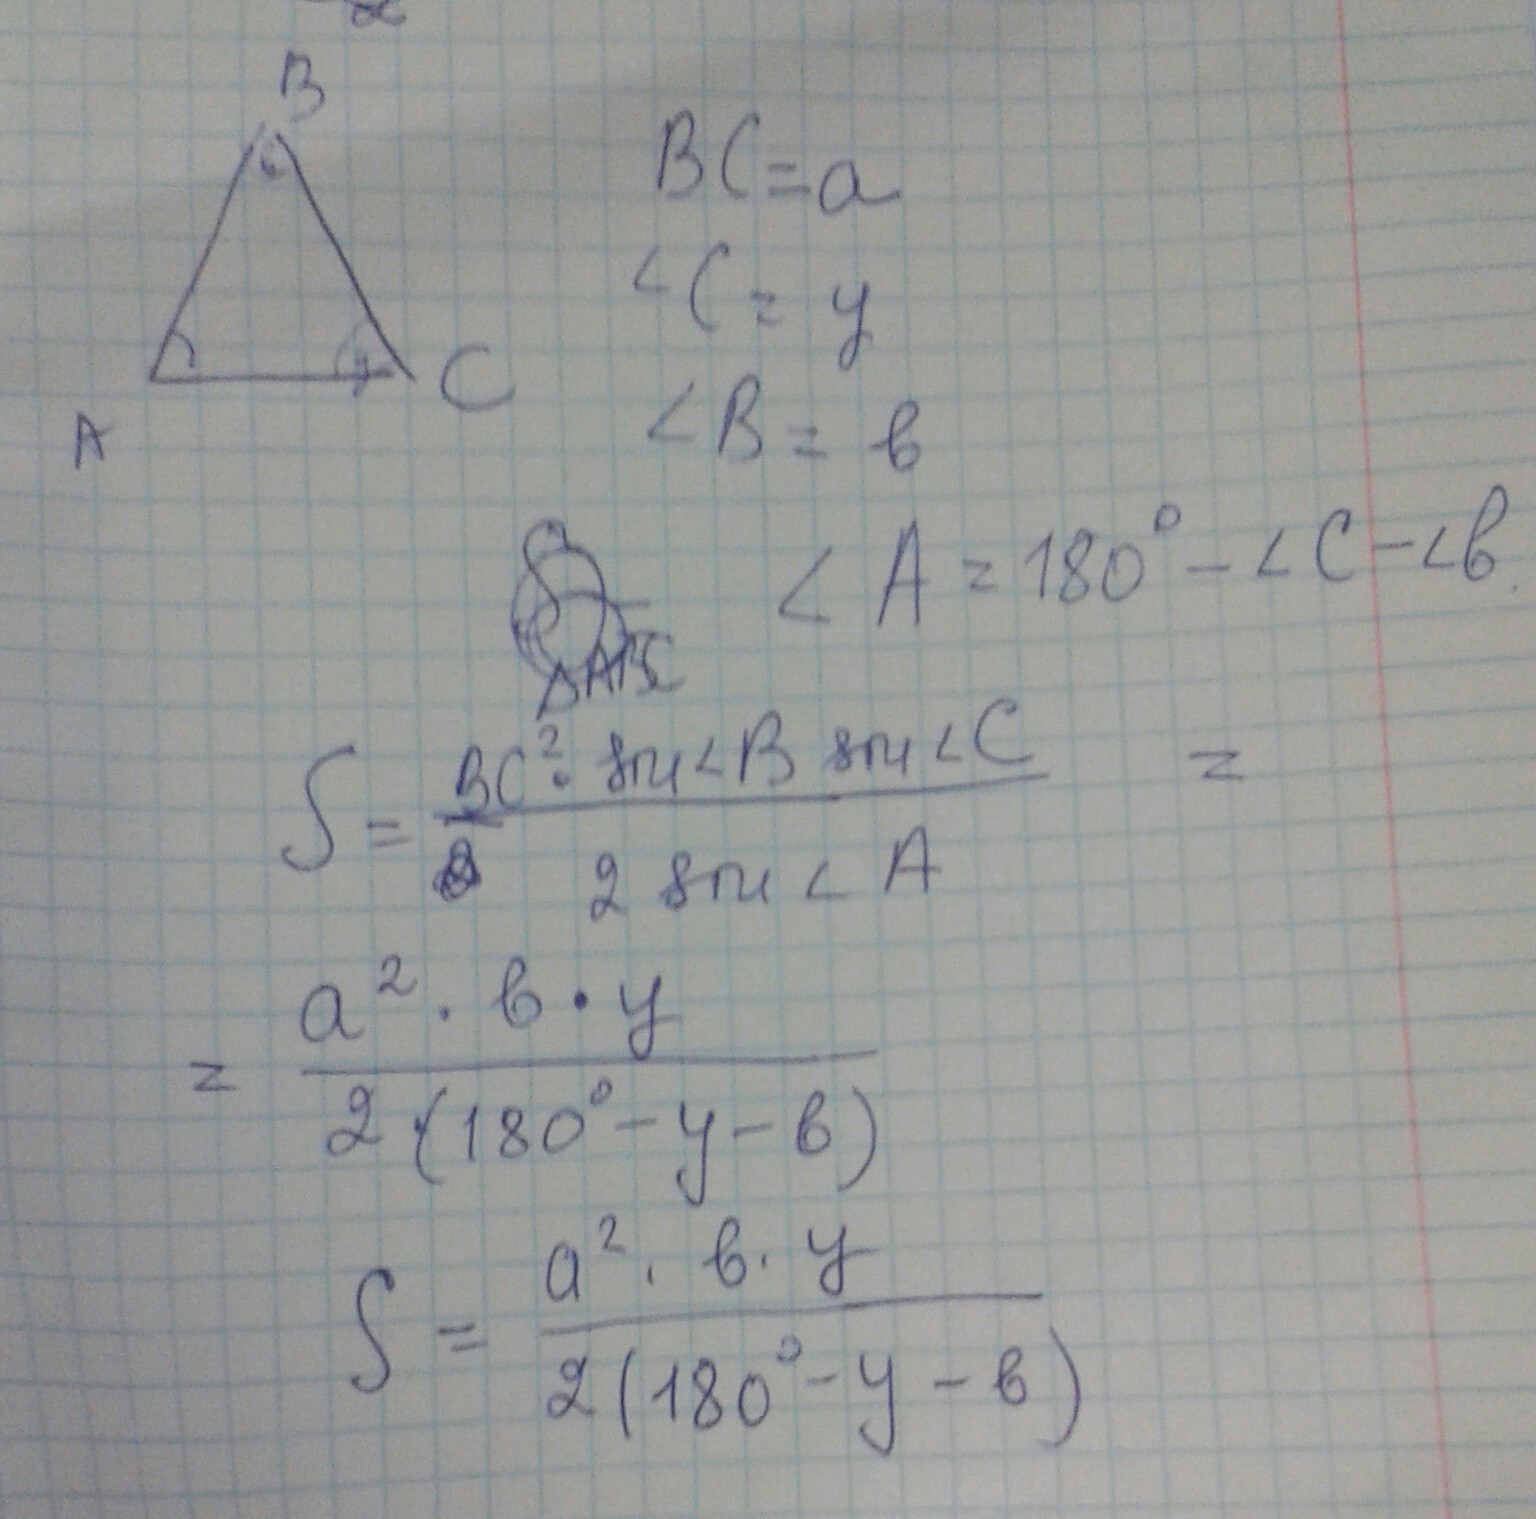 B
BC=a
∠C= y
∠B= в
A
C
∠A=180°-∠C-∠В
ΔABC
S= BC²· sin∠B sin∠C =
2 sin∠A
= a²·в·y
2·(180°-y-в)
S= a²·в·y
2(180°-y-в)